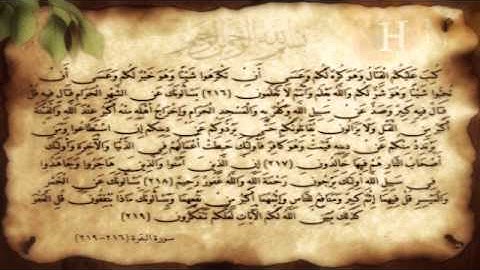 بسم الله الرحمن الرحيم
H
كتب عليكم القتال وهو كره لكم وعسى أن تكرهوا شيئا وهو خير لكم وعسى أن
تحبوا شيئا وهو شر لكم والله يعلم وأنتم لا تعلمون (٢١٦) يسألونك عن الشهر الحرام قتال فيه قل
قتال فيه كبير وصد عن سبيل الله وكفر به والمسجد الحرام وإخراج أهله منه أكبر عند الله والفتنة
أكبر من القتل ولا يزالون يقاتلونكم حتى يردوكم عن دينكم إن استطاعوا ومن
يرتدد منكم عن دينه فيمت وهو كافر فأولئك حبطت أعمالهم في الدنيا والآخرة وأولئك
أصحاب النار هم فيها خالدون (٢١٧) إن الذين آمنوا والذين هاجروا وجاهدوا
في سبيل الله أولئك يرجون رحمة الله والله غفور رحيم (٢١٨) يسألونك عن الخمر
والميسر قل فيهما إثم كبير ومنافع للناس وإثمهما أكبر من نفعهما ويسألونك ماذا ينفقون قل العفو
كذلك يبين الله لكم الآيات لعلكم تتفكرون (٢١٩)
سورة البقرة (٢١٦-٢١٩)